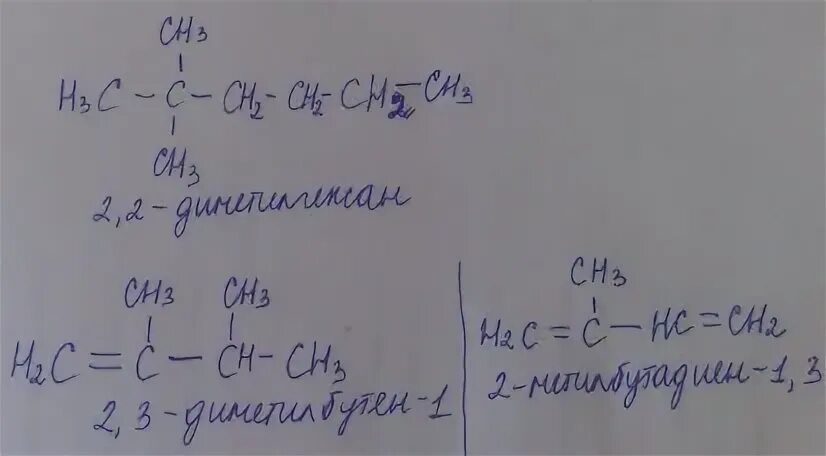 CH3
H3C - C - CH2 - CH2 - CH2 - CH3
CH3
2,2-диметилгексан
CH3 CH3
H2C = C - CH - CH3
2,3-диметилбутен-1
CH3
H2C = C - HC = CH2
2-метилбутадиен-1,3